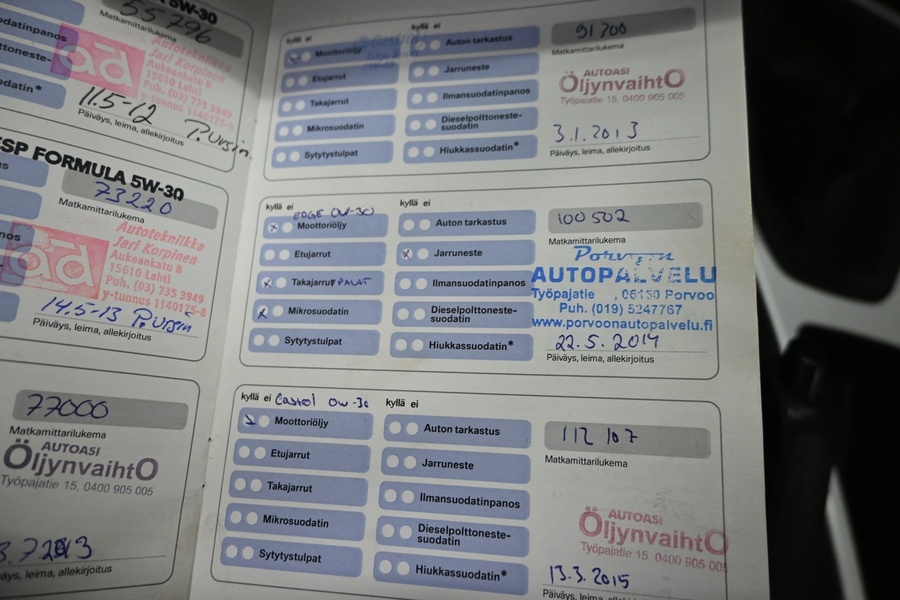 5W-30
55796
Matkamittarilukema
ad
Autotekniikka
Jari Korpinen
Aukeankatu 8
15610 Lahti
Puh. (03) 735 3949
y-tunnus 1140175-8
11.5-12 P. Ursin
Päiväys, leima, allekirjoitus
ESP FORMULA 5W-30
73220
Matkamittarilukema
ad
Autotekniikka
Jari Korpinen
Aukeankatu 8
15610 Lahti
Puh. (03) 735 3949
y-tunnus 1140175-8
14.5-13 P. Ursin
Päiväys, leima, allekirjoitus
77000
Matkamittarilukema
AUTOASI
ÖljynvaihtO
Työpajatie 15, 0400 905 005
Päiväys, leima, allekirjoitus
kyllä ei
Moottoriöljy
Etujarrut
Takajarrut
Mikrosuodatin
Sytytystulpat
kyllä ei
Auton tarkastus
Jarruneste
Ilmansuodatinpanos
Dieselpolttoneste-
suodatin
Hiukkassuodatin*
91700
Matkamittarilukema
AUTOASI
ÖljynvaihtO
Työpajatie 15, 0400 905 005
3.1.2013
Päiväys, leima, allekirjoitus
kyllä ei
EDGE 0W-30
Moottoriöljy
Etujarrut
Takajarrut PALAT
Mikrosuodatin
Sytytystulpat
kyllä ei
Auton tarkastus
Jarruneste
Ilmansuodatinpanos
Dieselpolttoneste-
suodatin
Hiukkassuodatin*
100502
Matkamittarilukema
Porvoon
AUTOPALVELU
Työpajatie , 06150 Porvoo
Puh. (019) 5247767
www.porvoonautopalvelu.fi
22.5.2014
Päiväys, leima, allekirjoitus
kyllä ei Castrol 0w-30
Moottoriöljy
Etujarrut
Takajarrut
Mikrosuodatin
Sytytystulpat
kyllä ei
Auton tarkastus
Jarruneste
Ilmansuodatinpanos
Dieselpolttoneste-
suodatin
Hiukkassuodatin*
112 107
Matkamittarilukema
AUTOASI
ÖljynvaihtO
Työpajatie 15, 0400 905 005
13.3.2015
Päiväys, leima, allekirjoitus